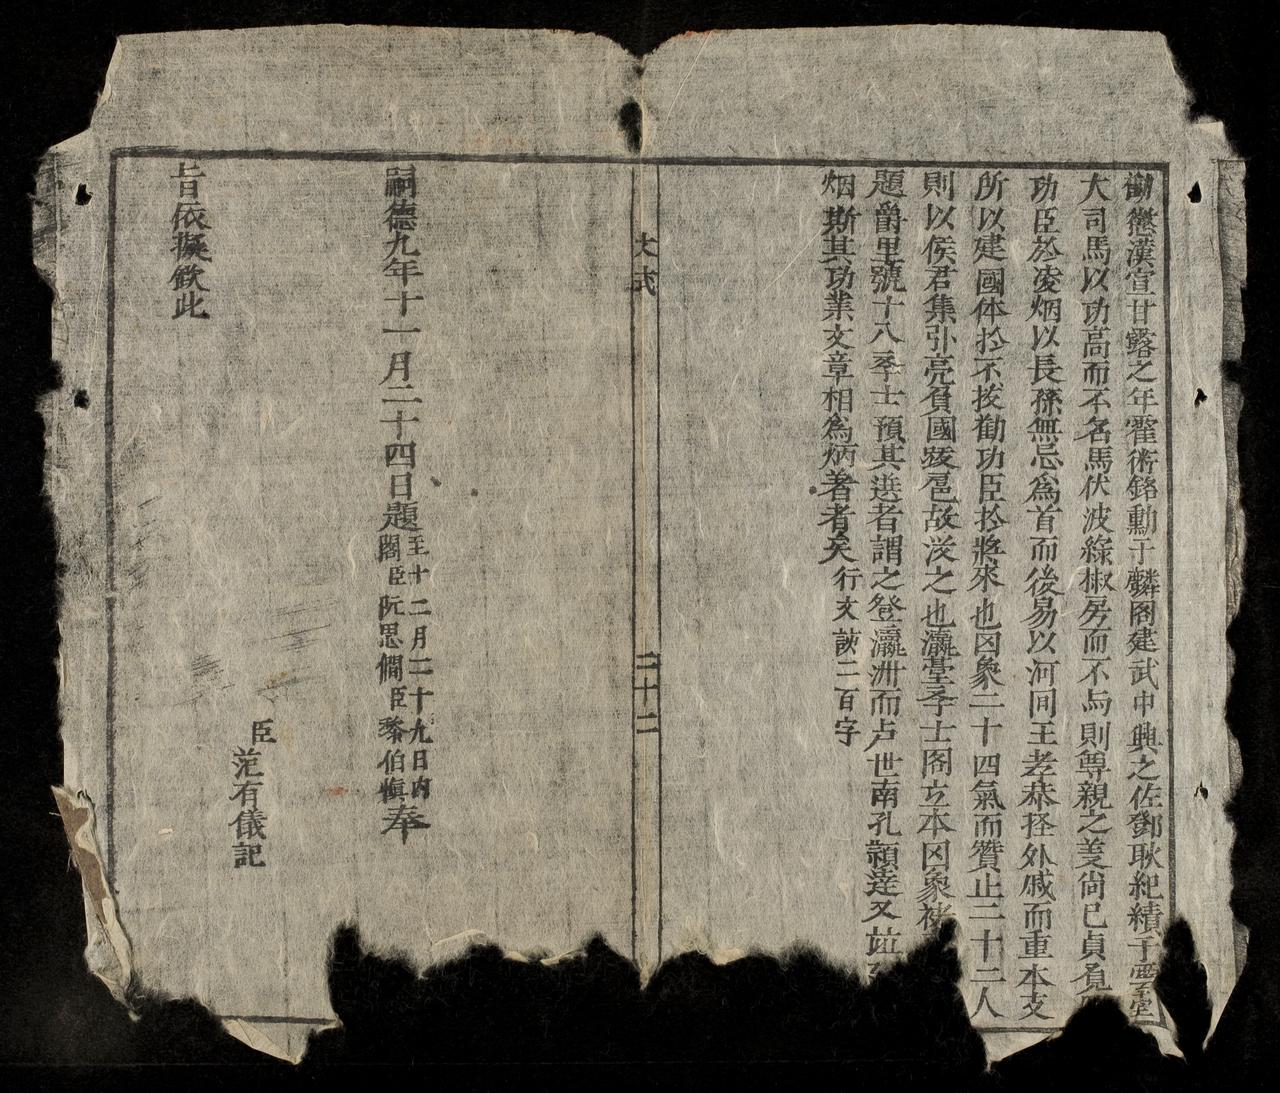 勸懲漢宣甘露之年霍術銘勳于麟閣建武中興之佐鄧耿紀績于雲臺
大司馬以功高而不名馬伏波綠椒房而不与則尊親之義尙已貞觀
功臣於凌烟以長孫無忌爲首而後易以河间王孝恭挃外戚而重本支
所以建國体扵不拔勸功臣扵將來也囙象二十四氣而贊止二十二人
則以侯君集引亮負國叛君故汳之也瀛臺孛士阁立本囙象褚
題爵里號十八孛士預其選者謂之登瀛洲而卢世南孔頴逹又並
烟斯其功業文章相爲炳著者矣行文該二百字
大式
二十二
嗣德九年十一月二十四日題至十二月二十九日内閣臣阮思僩臣黎伯愼奉
臣范有儀記
旨依擬欽此